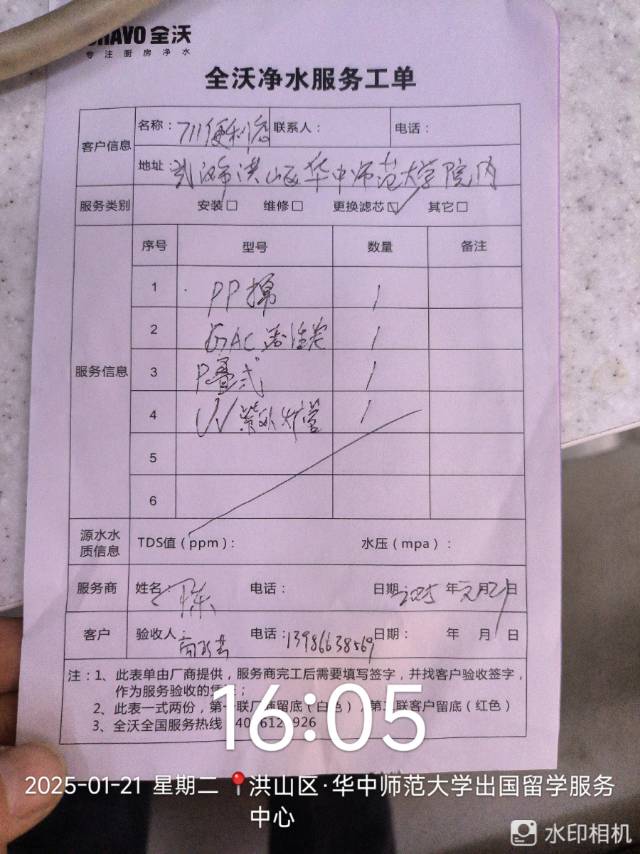 BRAVO 全沃
专注厨房净水
全沃净水服务工单
客户信息
名称：711便利店 联系人： 电话：
地址：武汉市洪山区华中师范大学院内
服务类别 安装□ 维修□ 更换滤芯☑ 其它□
服务信息
序号 型号 数量 备注
1 PP棉 1
2 GAC活性炭 1
3 P叠式 1
4 UV紫外灯管 1
5
6
源水水质信息 TDS值（ppm）： 水压（mpa）：
服务商 姓名： 电话： 日期：2025年元月21日
客户 验收人 电话：13986638569 日期： 年 月 日
注：1、此表单由厂商提供，服务商完工后需要填写签字，并找客户验收签字，
作为服务验收的
2、此表一式两份，第一联厂商留底（白色），第二联客户留底（红色）
3、全沃全国服务热线
16:05
2025-01-21 星期二 洪山区·华中师范大学出国留学服务
中心
水印相机